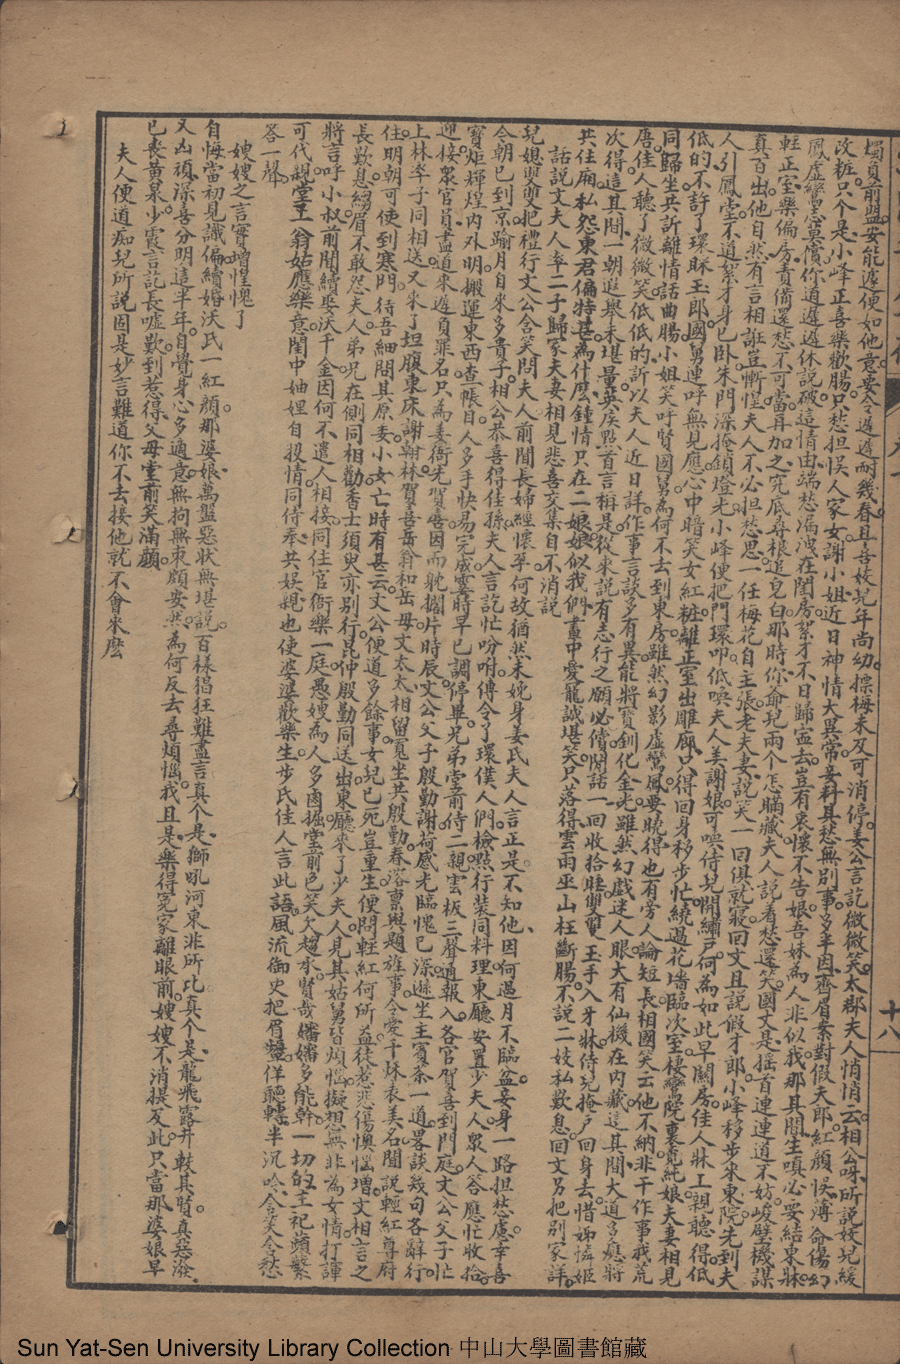 燭頁前盟安能遽便如他意要令遲遲耐幾春且喜妓兒年尚幼摽梅未及可消停姜公言訖微微笑太郡夫人悄悄云相公呀所說妓兒緩
改粧只个是小峰正喜樂歡腸只愁担悞人家女謝小姐近日神情大異常妾料其愁無別事多半因齊眉案對假夫郎紅顏悞薄命傷幻
鳳虛鸞怎莫償你道遲遲休說破這情由端愁漏洩在閨房絮才不日歸寍去豈有衷懷不告娘吾妹為人非似我那其間生嗔必要結東牀
輊正室樂偏房責俻還愁不可當再加之究底尋根追皃白那時你爺兒兩个怎瞞藏夫人說着愁還笑國丈是搖首連連道不妨峻壁機謀
真百出他自然有言相誑豈慚惶夫人不必担愁思一任梅花自主張老夫妻說笑一回俱就寢回文且說假才郎小峰移步來東院先到夫
人引鳳堂不道絮才身已臥朱門深掩鎖燈光小峰便把門環叩低喚夫人美謝娘可喚侍兒開繡戶何為如此早關房佳人牀上親聽得低
低的不許了環眯玉郎國舅連呼無見應心中暗笑女紅粧離正室出雕廊只得回身移步忙繞過花墻臨次室棲鸞院裏覔純娘夫妻相見
同歸坐共訴離情話曲腸小姐笑呼賢國舅為何不去到東房雖然幻影虛鸞鳳要曉得也有旁人論短長相國笑云他不納非干作事我荒
唐佳人聽了微微笑低低的訴以夫人近日詳作事言談多有異能將寶釧化金光雖然幻戲迷人眼大有仙機在內藏這其間大道言應將
次得這其間一朝遐舉未堪量英侯點首言稱是從來說有志行之願必償閒話一回收拾睦雙雙玉手入牙牀侍兒掩戶回身去惜姊憐姬
共住廂私怨東君偏特甚為什麼鍾情只在二娘娘似我們畫中愛寵誠堪笑只落得雲雨巫山枉斷腸不說二妓私歎息回文另把別家詳
話說文夫人率二子歸家夫妻相見悲喜交集自不消說
兒媳雙雙把禮行文公含笑問夫人前聞長婦經懷孕何故猶然未娩身姜氏夫人言正是不知他因何過月不臨盆妾身一路担愁慮幸喜
今朝已到京踰月自來多貴子相公恭喜得佳孫夫人言訖忙吩咐傳令了環僕人們檢點行裝同料理東廳安置少夫人眾人答應忙收拾
寶炬輝煌內外明搬運東西查賬目人多手快易完成霎時早已調停畢兄弟堂前侍二親雲板三聲通報入各官賀喜到門庭文公父子忙
迎接眾官員盡道來遲負罪名只為姜衙先賀喜因而躭擱片時辰文公父子殷勤謝荷感光臨愧已深遜坐主賓茶一道畧談幾句各辭行
上林李子同相送又來了坦腹東床謝翰林賀喜岳翁和岳母文太太相留覔坐共殷勤春容稟與題旌事令愛千秋表美名聞說輊紅尊府
住明朝可使到寒門待吾細問其原委小女亡時有甚云文公便道多餘事女兒已死豈重生便問輊紅何所益徒惹悲傷懊惱增文相言之
長歎息縐眉不敢怨夫人弟兄在側同相勸香士須臾亦別行昆仲殷勤同送出東廳來了少夫人見其姑舅皆煩惱擬想無非為女情打諢
將言呼小叔前聞續娶沃千金因何不遣人相接同住官衙樂一庭愚嫂為人多鹵掘堂前色笑欠趨承賢哉嬸嬸多能幹一切的主祀蘋蘩
可代親堂上翁姑應樂意閨中妯娌自投情同侍奉共娱親也使婆婆歡樂生步氏佳人言此語風流御史把眉顰佯聽轉半沉吟含笑含愁
答一聲
嫂嫂之言實增惶愧了
自悔當初見識偏續婚沃氏一紅顏那婆娘萬盤惡狀無堪說百樣猖狂難盡言真个是獅吼河東非所比真个是龍飛露井較其賢真惡潑
又凶頑深喜分明這半年自覺身心多適意無拘無束頗安然為何反去尋煩惱我且是樂得冤家離眼前嫂嫂不消提及此只當那婆娘早
已喪黃泉少霞言訖長噓歎到惹得父母堂前笑滿顏
夫人便道痴兒所說固是妙言難道你不去接他就不會來麽
十八
Sun Yat-Sen University Library Collection 中山大學圖書館藏